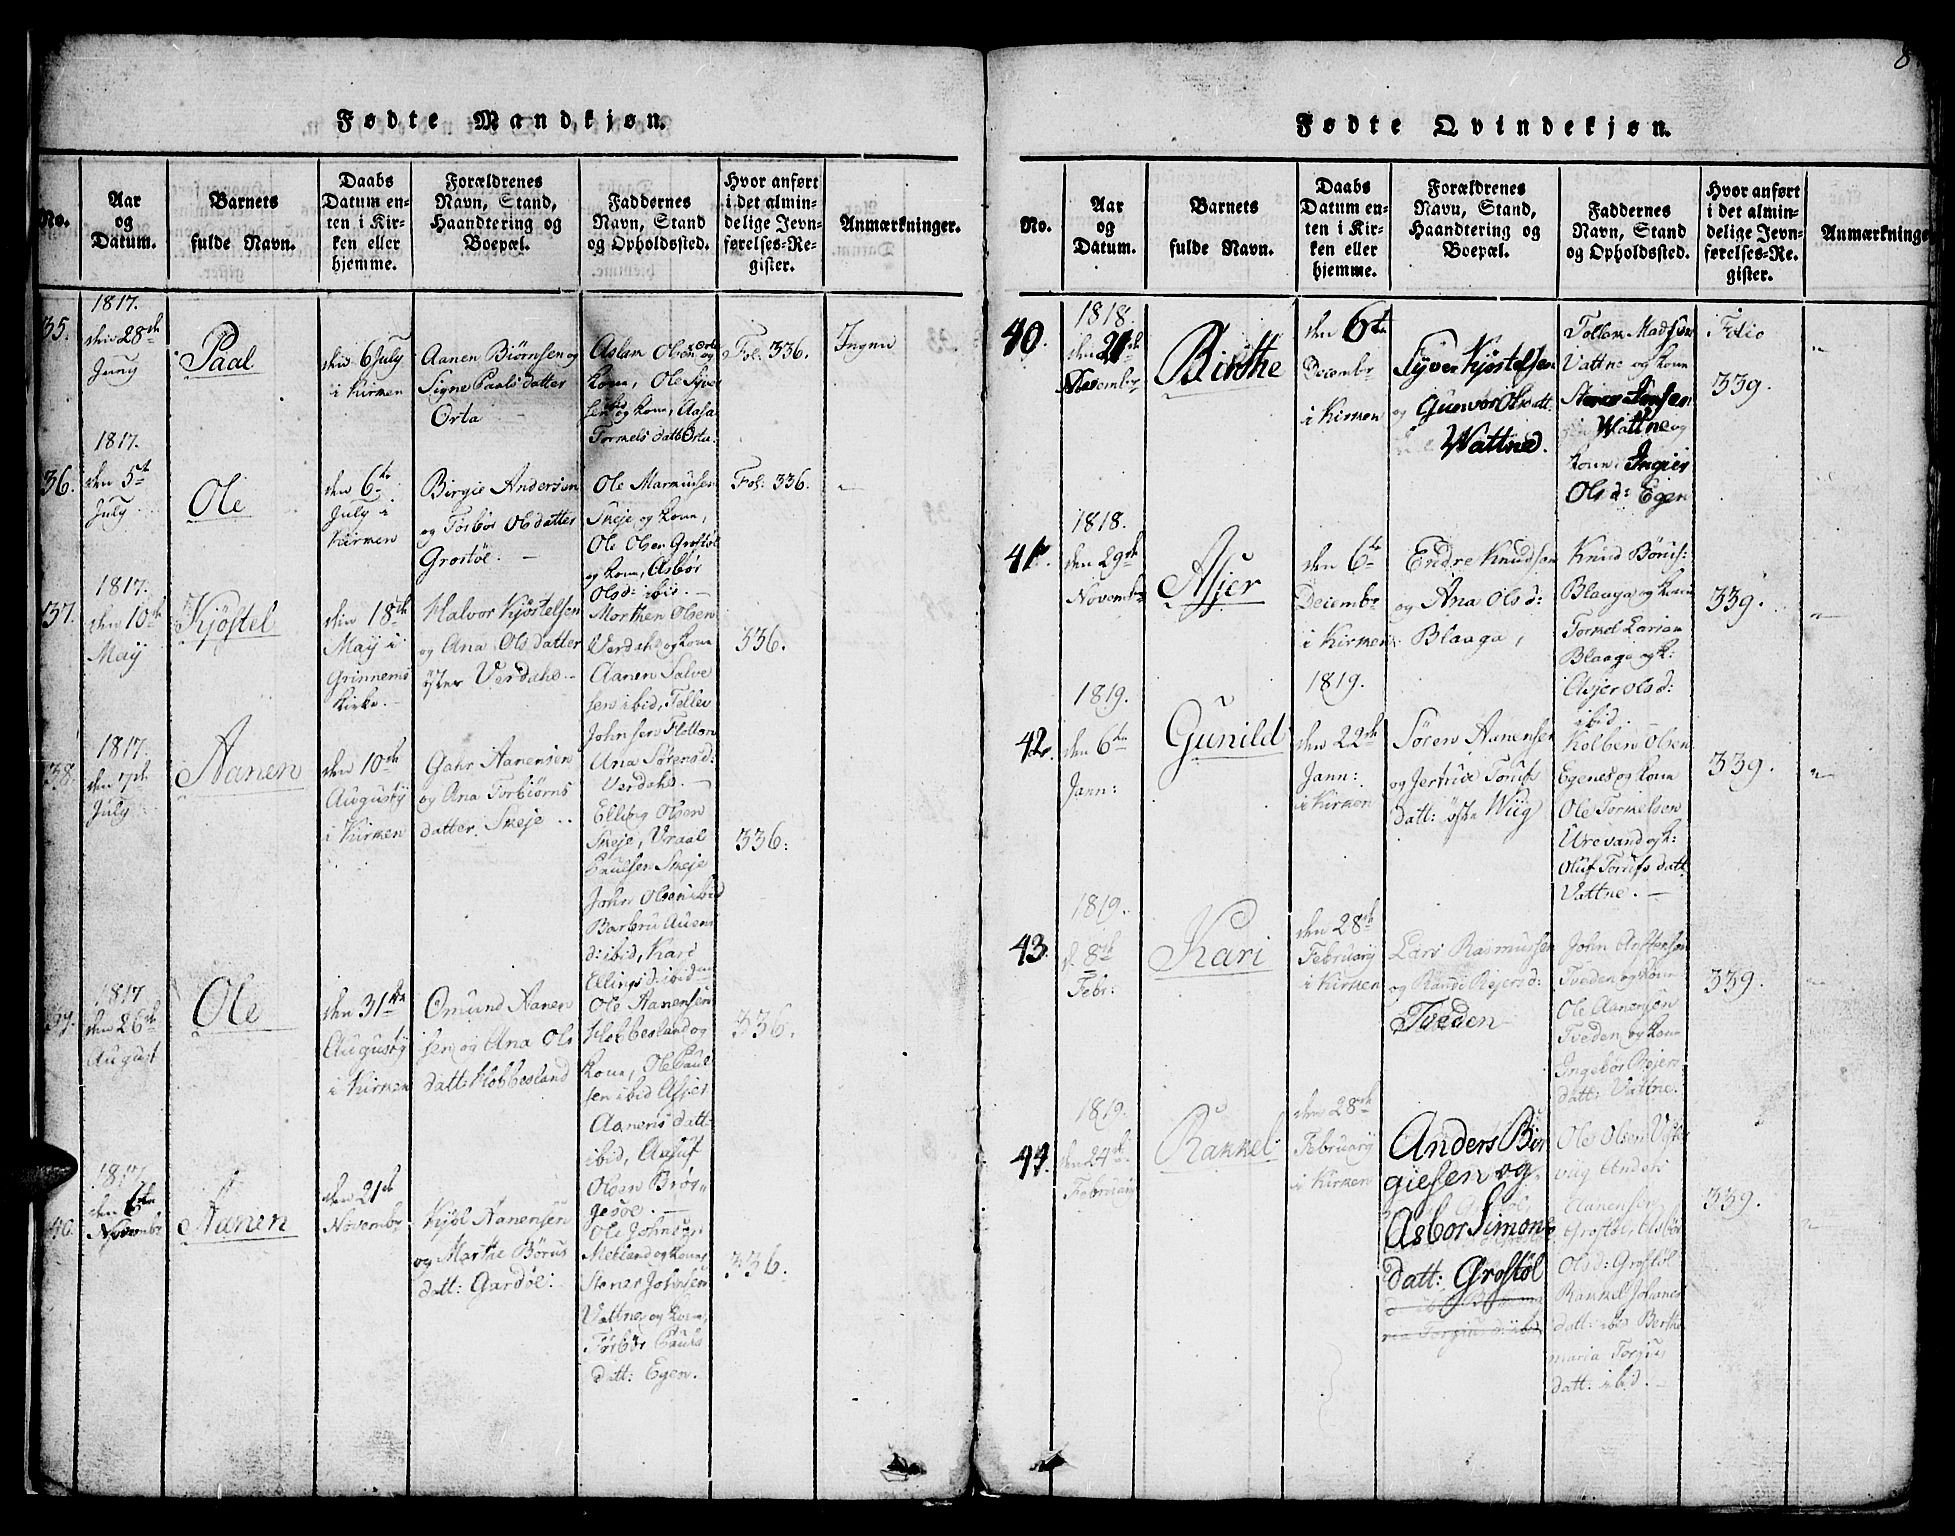 8
Fødte Mandkjøn.
No.
Aar
og
Datum.
Barnets
fulde Navn.
Daabs
Datum en-
ten i Kir-
ken eller
hjemme.
Forældrenes
Navn, Stand,
Haandtering og
Boepæl.
Faddernes
Navn, Stand
og Opholdssted.
Hvor anført
i det almin-
delige Jevn-
førelses-Re-
gister.
Anmærkninger.
35.
1817.
den 28de
Juny
Paal
den 6 July
i Kirken
Aanen Biørnsen og
Signe Paalsdatter
Orta
Aslam Olsen og
kone, Ole Syver
sen og kone, Aasa
Tormels datt Orta.
Fol. 336.
Ingen
36.
1817.
den 5te
July
Ole
den 6te
July i
Kirken
Birgie Andersen
og Torbor Olsdatter
Grostøl.
Ole Marmusen
Skeje og kone,
Ole Olsen Grostøl
og kone, Asbor
Olsd: ibid.
Fol: 336.
37.
1817.
den 10de
May
Kjøstel
den 18de
May i
Grinnems
Kirke.
Halvor Kjøstelsen
og Ana Olsdatter
yster Verdahl.
Morthen Olsen
Verdahl og kone
Aanen Salve
sen ibid, Tellev
Johnsen Flottan
Ana Sørensd:
Verdahl.
336.
38.
1817.
den 7de
July
Aanen
den 10de
Augusty
i Kirken
Gahr Aanensen
og Ana Torbiørns
datter. Skeje.
Elling Olsen
Skeje, Vraal
Knudsen Skeje
John Olsen ibid
Barbru Auens
d: ibid, Kari
Ellingsd: ibid
336.
1817
den 26de
August
Ole
den 31te
Augusty
i Kirken
Omund Aanen
sen og Ana Ols
datt: Klobbesland
Ole Aanensen
Klobbesland og
kone, Ole Paul
sen ibid Asjer
Aanens datt:
ibid, Aasuf
Olsen Brøs-
gesøe.
336.
40.
1817.
den 6te
Novembr
Aanen
den 21de
Novembr
Kjøl Aanensen
og Marthe Børus
datt: Aardøl.
Ole Johnsen
Metland og kone,
Stener Johnsen
Vattne og kone,
Torbor Gauks
datt: Egen.
336.
Fødte Qvindekjøn.
No.
Aar
og
Datum.
Barnets
fulde Navn.
Daabs
Datum en-
ten i Kir-
ken eller
hjemme.
Forældrenes
Navn, Stand,
Haandtering og
Boepæl.
Faddernes
Navn, Stand
og Opholdssted.
Hvor anført
i det almin-
delige Jevn-
førelses-Re-
gister.
Anmærkninge
40.
1818.
den 21de
November
Birthe
den 6te
Decembr
i Kirken
Syver Kjøstelsen
og Gunvor Olsdatt.
Wattne.
Tollak Madsen
Vattne og kone
Jensen
Wattne og
kone: Ingier
Olsd: Egen
Folio
339.
41.
1818.
den 29de
Novembr
Asjer
den 6te
Decembr
i Kirken
Endre Knudsen
og Ana Olsd:
Blaaga,
Knud Børus:
Blaaga og kone
Tormel Larian
Blaaga og k:
Asjer Olsd:
ibid.
339.
42.
1819.
den 6te
Jann:
Gunild
1819.
den 22de
Jann:
i Kirken
Søren Aanensen
og Jertrue Toruf
datt: øste Wiig
Kolben Olsen
Egenes og kone
Ole Tormelsen
Urevand og k:
Oluf Torufs datt
Vattne.
339.
43.
1819.
d. 8de
Febr:
Kari
den 28de
February
i Kirken
Lars Rasmussen
og Rande Rejersd:
Tveden
John Anstensen
Tveden og kone
Ole Aanensen
Tveden og kone
Ingebor Rejers
datt: Vattne.
339.
44.
1819.
den 24de
February
Rakkel
den 28de
February
i Kirken
Anders Bir
giesen og
Asbor Simons
datt: Grostøl
Ole Olsen Vester
viig Anders
Aanensen
Grostøl, Asbor
Olsd: Grostøl
Rakkel Johanes
datt: ibid Berthe
maria Torjus
datt: ibid.
339.